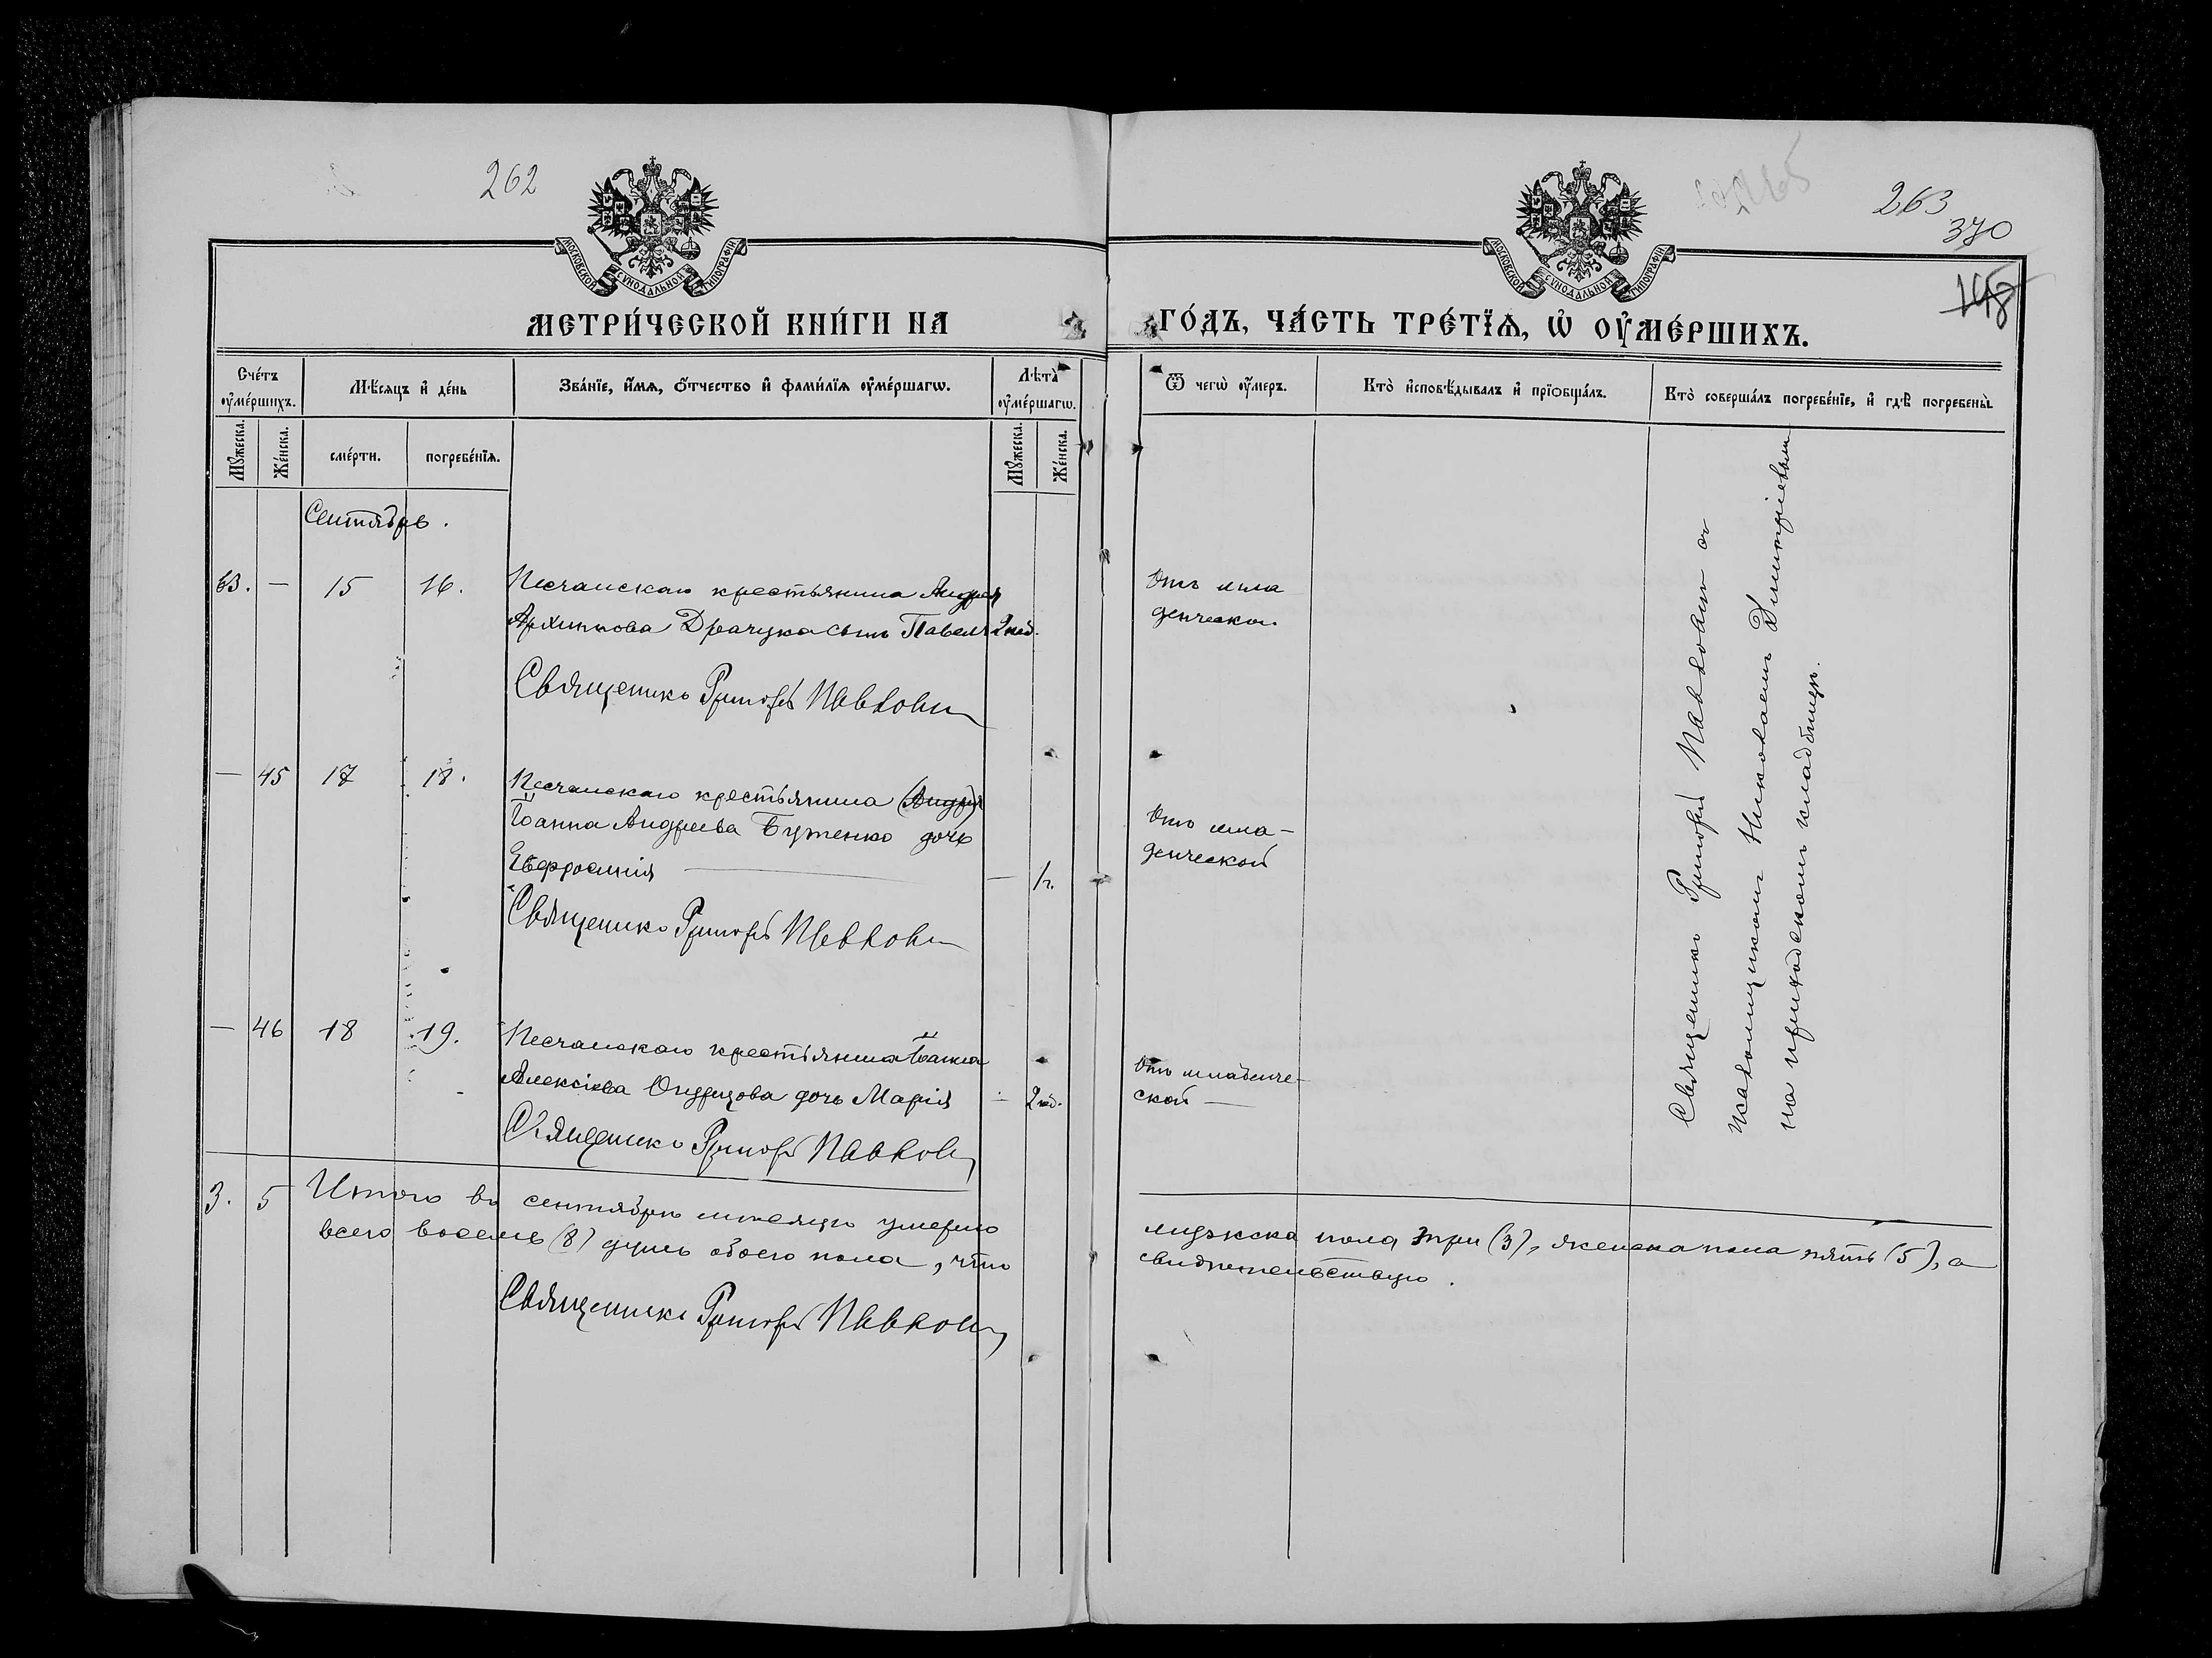 262
МОСКОВСКОЙ СѴНОДАЛЬНОЙ ТИПОГРАФІИ
МЕТРИ́ЧЕСКОЙ КНИ́ГИ НА
Сче́тъ ѹ҆ме́ршихъ.
Мѣ́сяцъ и҆ де́нь
Зва́нїе, и҆́мѧ, ѻ҆́тчество и҆ фами́лїѧ ѹ҆ме́ршагѡ.
Лѣ́та ѹ҆ме́ршагѡ.
Мꙋ́жеска. Же́нска.
сме́рти. погребе́нїѧ.
Мꙋ́жеска. Же́нска.
Сентябрь.
63. — 15 16. Песчанскаго крестьянина Андрея
Архипова Драчука сынъ Павелъ 2 нед.
Священикъ Григорій Павлович
— 45 17 18. Песчанскаго крестьянина (Андрея)
Іоанна Андреева Бутенко дочь
Евфросинія — 1 г.
Священикъ Григорій Павлович
— 46 18 19. Песчанскаго крестьянина Іоанна
Алексіева дочь Марія — 2 нед.
Священикъ Григорій Павлович
3. 5 Итого въ сентябрѣ месяцѣ умерло
всего восемь (8) душъ обоего пола, что
Священикъ Григорій Павлович
263
370
МОСКОВСКОЙ СѴНОДАЛЬНОЙ ТИПОГРАФІИ
ГО́ДЪ, ЧА́СТЬ ТРЕ́ТЇѦ, Ѡ҆ ОУ҆МЕ́РШИХЪ.
Ѿ чегѡ̀ ѹ҆́меръ.
Кто̀ и҆сповѣ́дывалъ и҆ прїѡбща́лъ.
Кто̀ соверша́лъ погребе́нїе, и҆ гдѣ̀ погребены̀.
Отъ мла
денческой
Отъ мла-
денческой
Отъ младенче-
ской —
Священикъ Григорій Павлович съ
псаломщикомъ Николаемъ Димитріевымъ
на приходскомъ кладбищѣ.
мужска пола три (3), женска пола пять (5), а
свидѣтельствую.